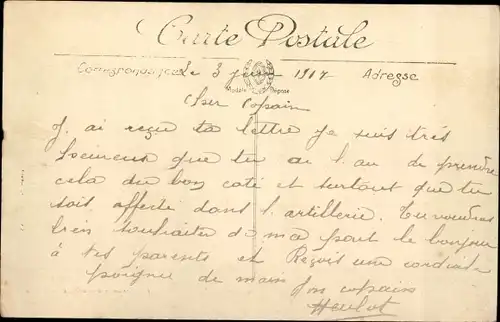 Carte Postale
Correspondance Le 3 juin 1917 Adresse
Modèle Déposé
Cher Copain
J. ai reçue ta lettre Je suis très
que tu ai l. air de prendre
cela du bon coté et surtout que tu
soit affecte dans l. artillerie. Tu voudras
bien souhaiter de ma part le bonjour
à tes parents et Reçois une cordiale
poignee de main Ton copain